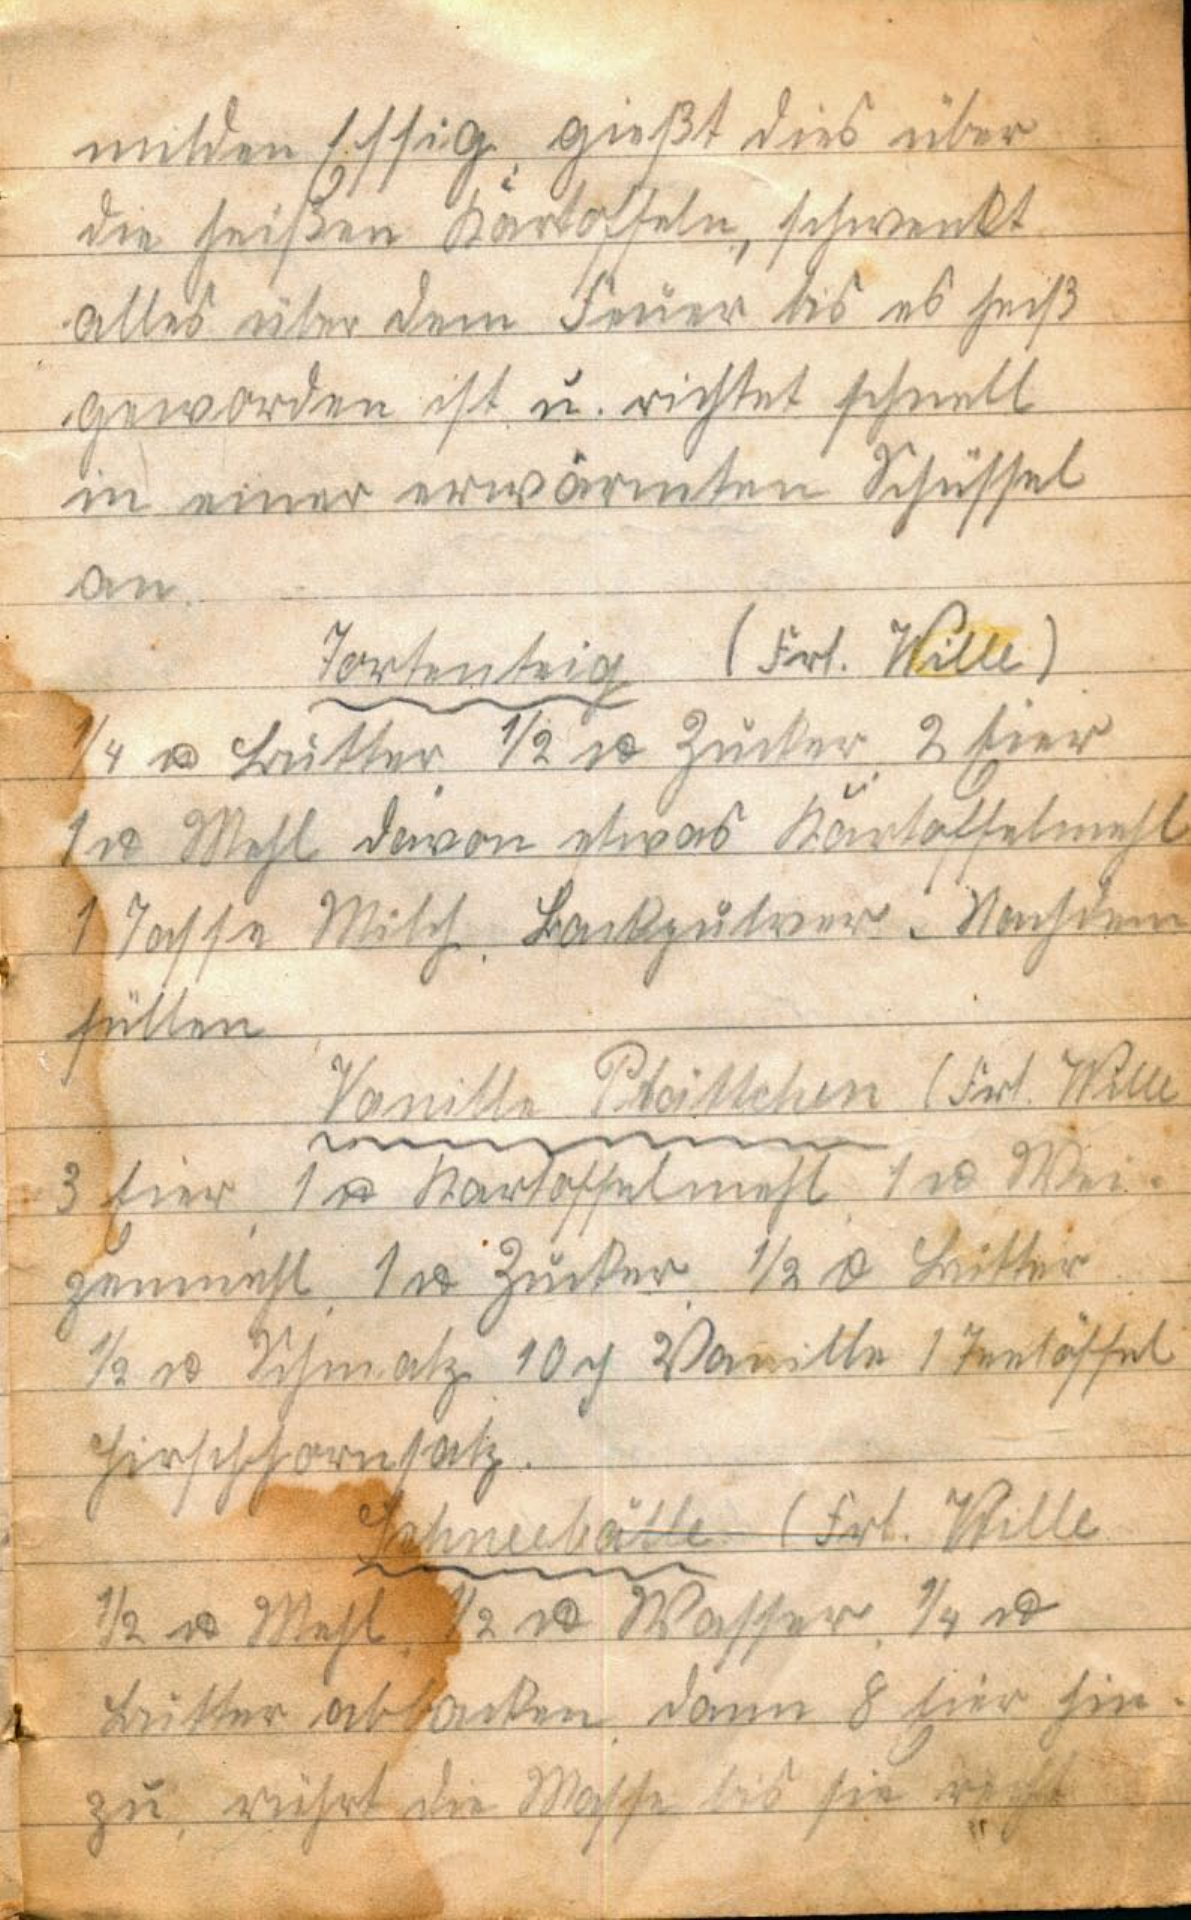 milden Essig, gießt dies über
die heißen Kartoffeln, schwenkt
alles über dem Feuer bis es heiß
geworden ist u. richtet schnell
in einer erwärmten Schüssel
an.
Tortenteig (Frl. Wille)
1/4 ℔ Butter, 1/2 ℔ Zucker, 2 Eier
1 ℔ Mehl davon etwas Kartoffelmehl
1 Tasse Milch, Backpulver. Nachdem
füllen
Vanille Plättchen (Frl. Wille
3 Eier, 1 ℔ Kartoffelmehl, 1 ℔ Wei-
zenmehl, 1 ℔ Zucker, 1/2 ℔ Butter
1/2 ℔ Schmalz, 10 g Vanille 1 Teelöffel
Hirschhornsalz.
Schneebälle (Frl. Wille
1/2 ℔ Mehl, 1/2 ℔ Wasser, 1/4 ℔
Butter abbacken, dann 8 Eier hin-
zu, rührt die Masse bis sie recht